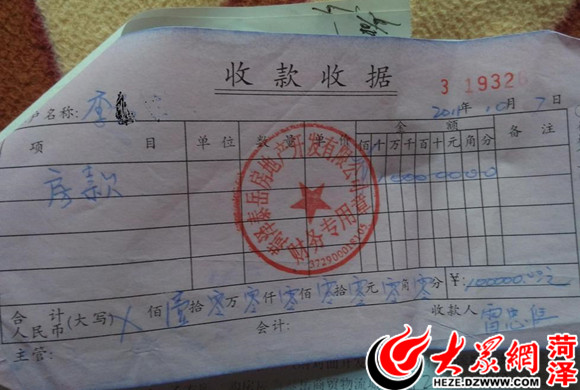 收款收据
3 1932
户名称: 李
2011年 10月 7日
项 目 单位 数量 单价 金额 备注
佰十万千百十元角分
房款
100000.00
泰岳房地产开发有限公司
财务专用章
合计人民币(大写) 佰壹拾零万零仟零佰零拾零元零角零分 ¥:100000.00元
主管: 会计: 收款人
大众網 菏泽
HEZE.DZWWW.COM